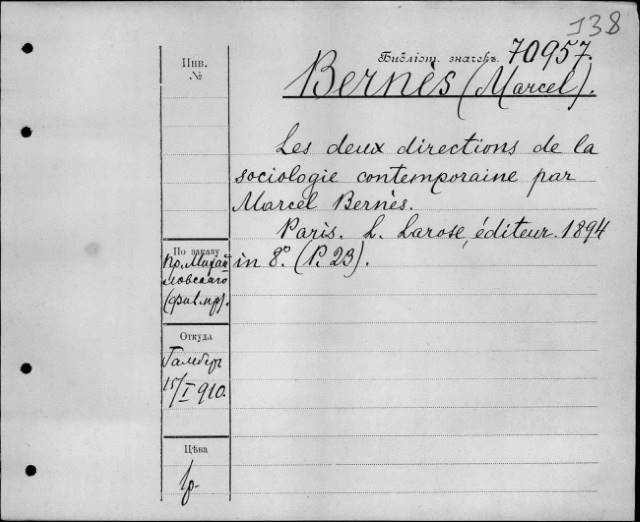 138
Инв.
№
Библіот. значекъ 70957.
Bernès (Marcel).
Les deux directions de la
sociologie contemporaine par
Marcel Bernès.
Paris. L. Larose, éditeur. 1894
in 8°. (P. 23).
По заказу
Пр. Михай
ловскаго
(фил. пр).
Откуда
Гамбер
15/I 910.
Цѣна
1р-